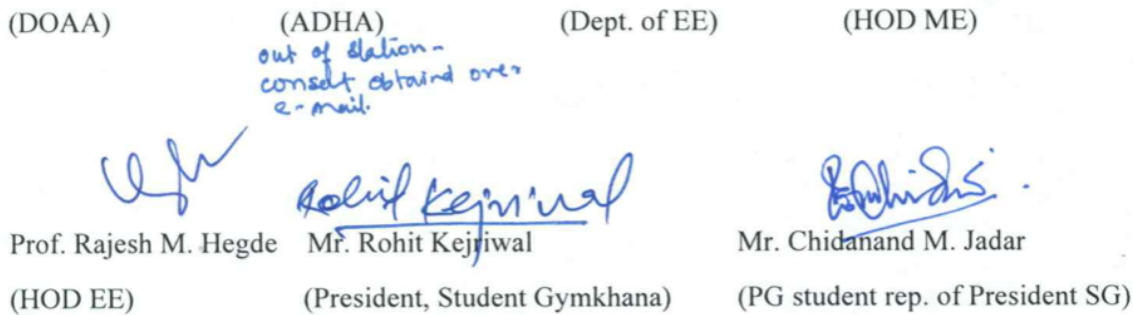 (DOAA) (ADHA) (Dept. of EE) (HOD ME)
out of station -
consent obtaind over
e-mail.
Rohit Kejriwal
Prof. Rajesh M. Hegde Mr. Rohit Kejriwal Mr. Chidanand M. Jadar
(HOD EE) (President, Student Gymkhana) (PG student rep. of President SG)